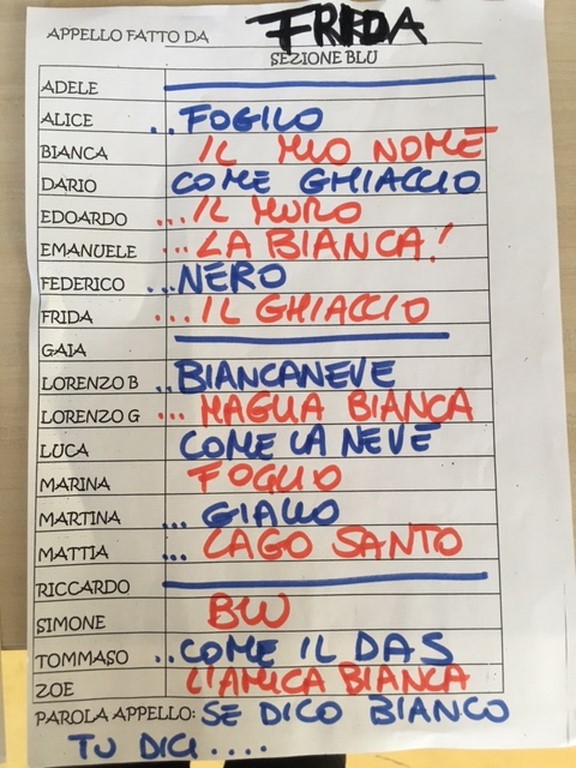 APPELLO FATTO DA FRIDA
SEZIONE BLU
ADELE
ALICE ..FOGILO
BIANCA IL MIO NOME
DARIO COME GHIACCIO
EDOARDO ...IL MURO
EMANUELE ...LA BIANCA!
FEDERICO ...NERO
FRIDA ...IL GHIACCIO
GAIA
LORENZO B ..BIANCANEVE
LORENZO G ...MAGLIA BIANCA
LUCA COME LA NEVE
MARINA FOGLIO
MARTINA ...GIALLO
MATTIA ...LAGO SANTO
RICCARDO
SIMONE BLU
TOMMASO ..COME IL DAS
ZOE L'AMICA BIANCA
PAROLA APPELLO: SE DICO BIANCO
TU DICI....